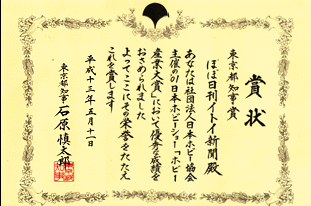 賞状
東京都知事賞
ほぼ日刊イトイ新聞殿
あなたは社団法人日本ホビー協会
主催の01日本ホビーショー「ホビー
産業大賞」において優秀な成績を
おさめられました
よってここにその栄誉をたたえ
これを賞します
平成十三年五月十一日
東京都知事 石原慎太郎